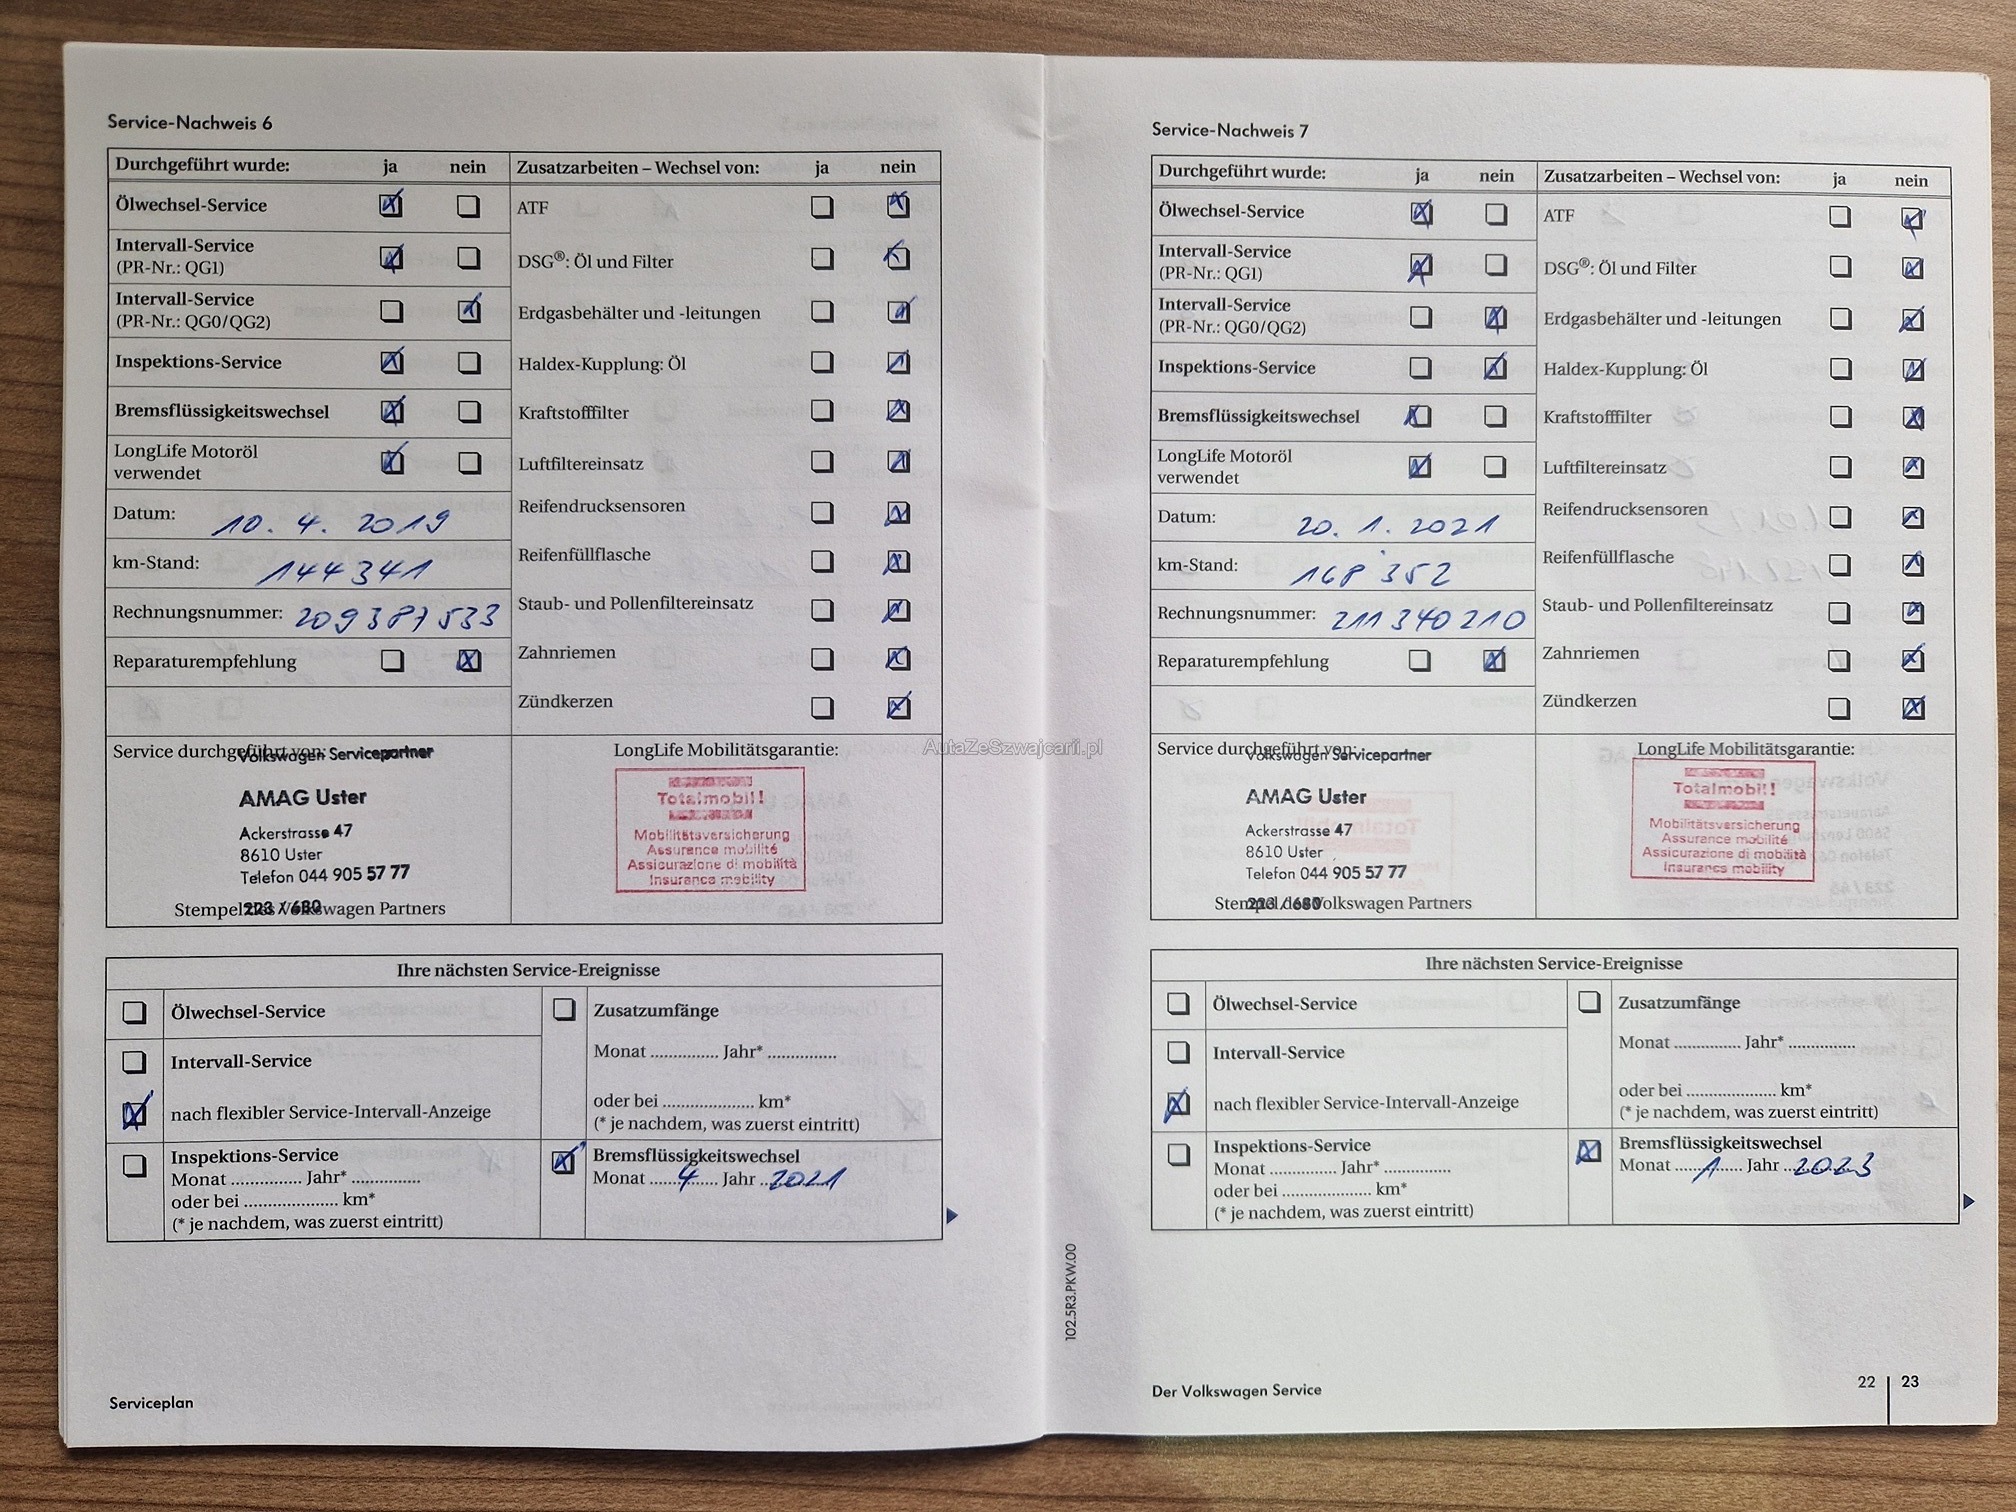 Service-Nachweis 6
Durchgeführt wurde: ja nein Zusatzarbeiten – Wechsel von: ja nein
Ölwechsel-Service
Intervall-Service
(PR-Nr.: QG1)
Intervall-Service
(PR-Nr.: QG0/QG2)
Inspektions-Service
Bremsflüssigkeitswechsel
LongLife Motoröl
verwendet
Datum: 10. 4. 2019
km-Stand: 144341
Rechnungsnummer: 209387533
Reparaturempfehlung
ATF
DSG®: Öl und Filter
Erdgasbehälter und -leitungen
Haldex-Kupplung: Öl
Kraftstofffilter
Luftfiltereinsatz
Reifendrucksensoren
Reifenfüllflasche
Staub- und Pollenfiltereinsatz
Zahnriemen
Zündkerzen
Service durchgeführt von:
Volkswagen Servicepartner
AMAG Uster
Ackerstrasse 47
8610 Uster
Telefon 044 905 57 77
223 / 680
Stempel des Volkswagen Partners
LongLife Mobilitätsgarantie:
Totalmobil!
Mobilitätsversicherung
Assurance mobilité
Assicurazione di mobilità
Insurance mobility
Ihre nächsten Service-Ereignisse
Ölwechsel-Service
Intervall-Service
nach flexibler Service-Intervall-Anzeige
Inspektions-Service
Monat .............. Jahr* ..............
oder bei ................... km*
(* je nachdem, was zuerst eintritt)
Zusatzumfänge
Monat .............. Jahr* ..............
oder bei ................... km*
(* je nachdem, was zuerst eintritt)
Bremsflüssigkeitswechsel
Monat ......4...... Jahr ..2021
Serviceplan
AutaZeSzwajcarii.pl
Service-Nachweis 7
Durchgeführt wurde: ja nein Zusatzarbeiten – Wechsel von: ja nein
Ölwechsel-Service
Intervall-Service
(PR-Nr.: QG1)
Intervall-Service
(PR-Nr.: QG0/QG2)
Inspektions-Service
Bremsflüssigkeitswechsel
LongLife Motoröl
verwendet
Datum: 20. 1. 2021
km-Stand: 168'352
Rechnungsnummer: 211340210
Reparaturempfehlung
ATF
DSG®: Öl und Filter
Erdgasbehälter und -leitungen
Haldex-Kupplung: Öl
Kraftstofffilter
Luftfiltereinsatz
Reifendrucksensoren
Reifenfüllflasche
Staub- und Pollenfiltereinsatz
Zahnriemen
Zündkerzen
Service durchgeführt von:
Volkswagen Servicepartner
AMAG Uster
Ackerstrasse 47
8610 Uster
Telefon 044 905 57 77
223 / 680
Stempel des Volkswagen Partners
LongLife Mobilitätsgarantie:
Totalmobil!
Mobilitätsversicherung
Assurance mobilité
Assicurazione di mobilità
Insurance mobility
Ihre nächsten Service-Ereignisse
Ölwechsel-Service
Intervall-Service
nach flexibler Service-Intervall-Anzeige
Inspektions-Service
Monat .............. Jahr* ..............
oder bei ................... km*
(* je nachdem, was zuerst eintritt)
Zusatzumfänge
Monat .............. Jahr* ..............
oder bei ................... km*
(* je nachdem, was zuerst eintritt)
Bremsflüssigkeitswechsel
Monat ......1...... Jahr ..2023
102.5R3.PKW.00
Der Volkswagen Service
22 23